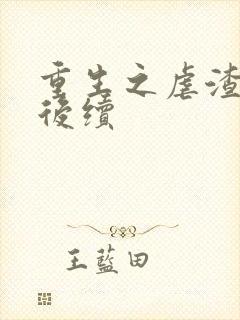 重生之虐渣
後續
王藍田